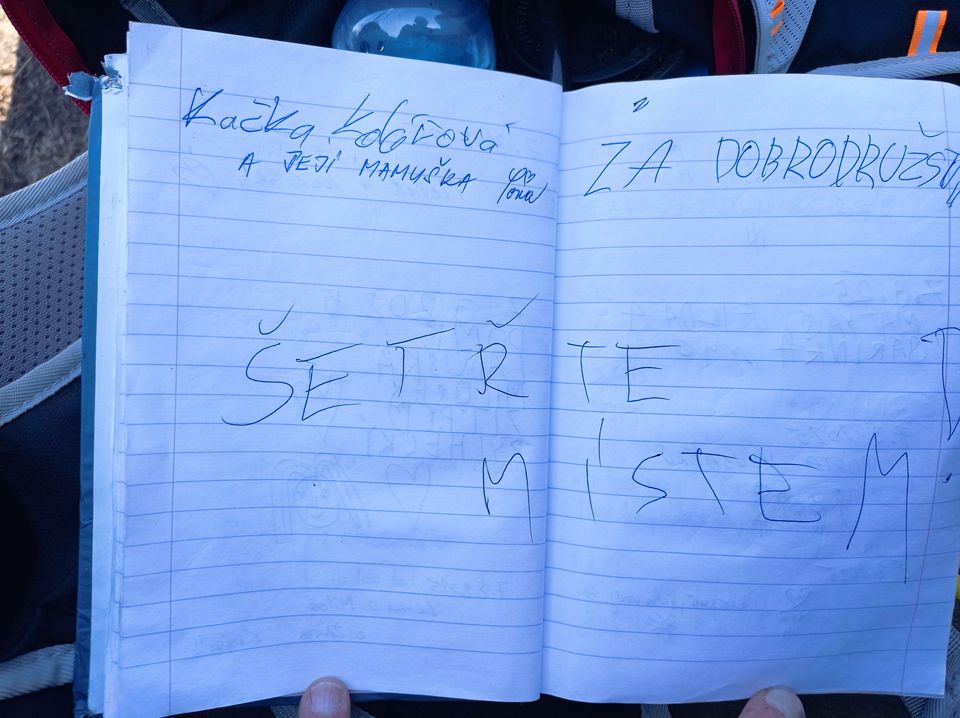 Kačka Kolářová
A JEJÍ MAMUŠKA
ZA DOBRODRUŽST
ŠETŘTE
MÍSTEM